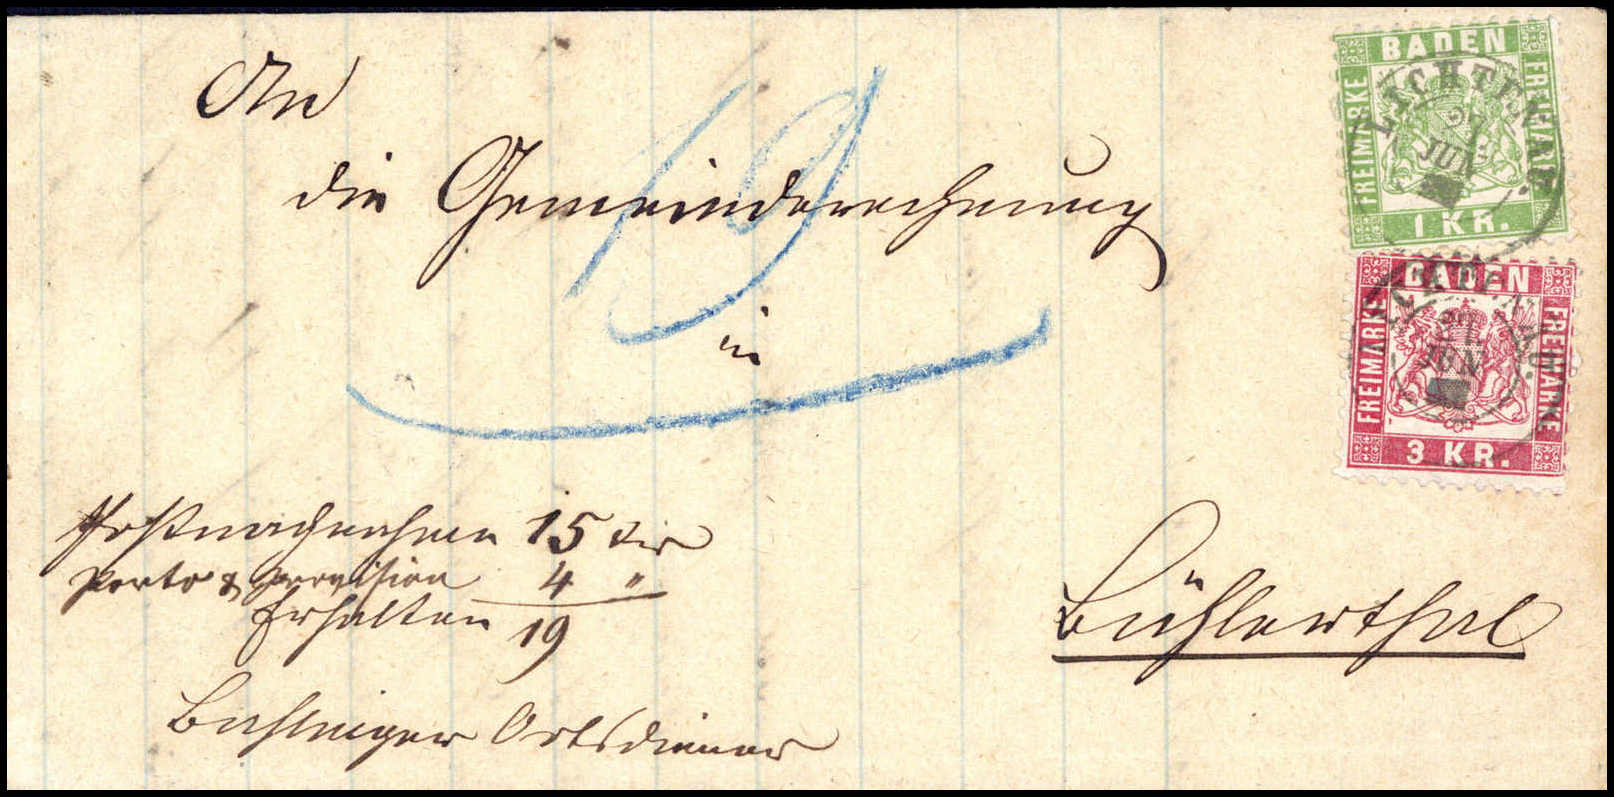 An
die Gemeinderechnung
in
19
Bühlerthal
Postnachnahme 15 Kr
Porto & Provision 4 "
Erhalten 19
Ortsdiener
BADEN
FREIMARKE
FREIMARKE
1 KR.
LICHTENAU
27
JUN
BADEN
FREIMARKE
FREIMARKE
3 KR.
LICHTENAU.
27
JUN